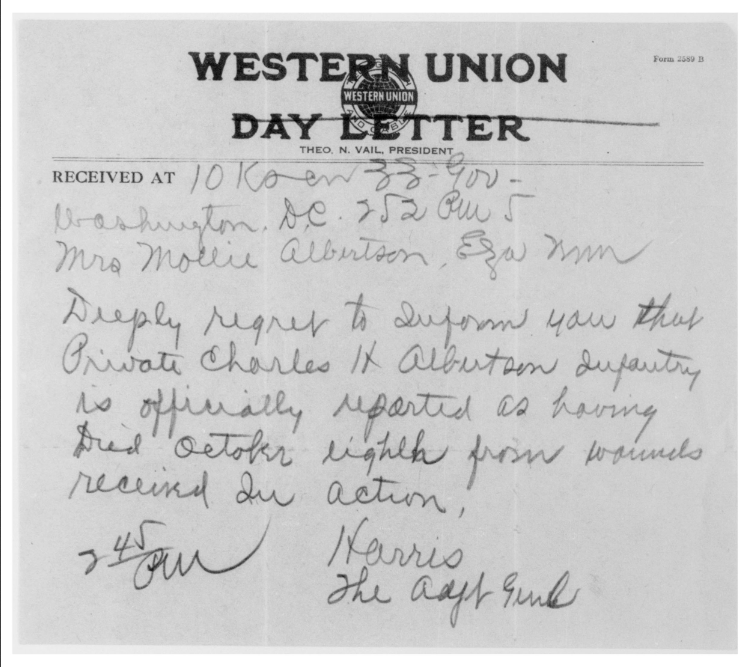 WESTERN UNION
Form 2589 B
WESTERN UNION
DAY LETTER
THEO. N. VAIL, PRESIDENT
RECEIVED AT 10 Ks cn 33 - Gov -
Washington. D.C. 252 PM 5
Mrs Mollie Albertson,
Deeply regret to Inform you that
Private Charles H Albertson Infantry
is officially reported as having
Died October eighth from wounds
received In action,
2 45 PM
Harris
The Adjt Genl